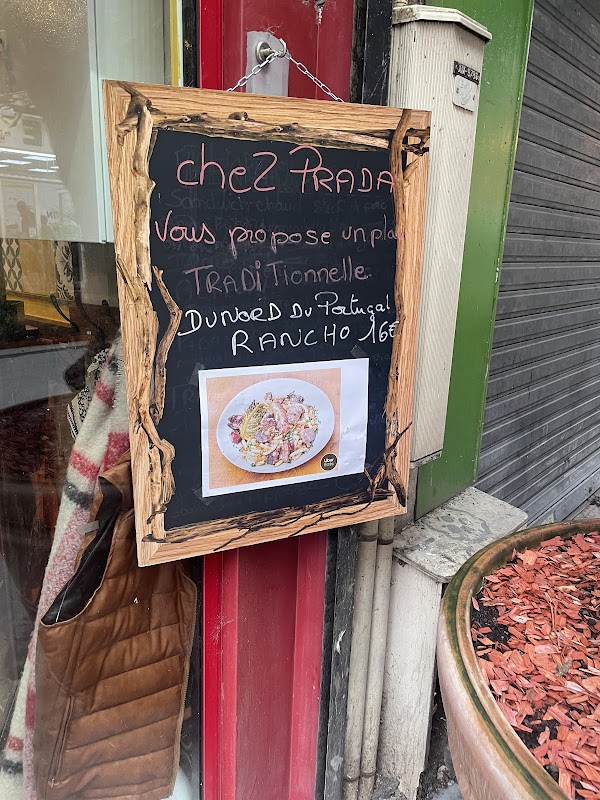 chez PRADA
Vous propose un pla
TRADITionnelle
DU NORD DU Portugal
RANCHO 16€
Uber
Eats